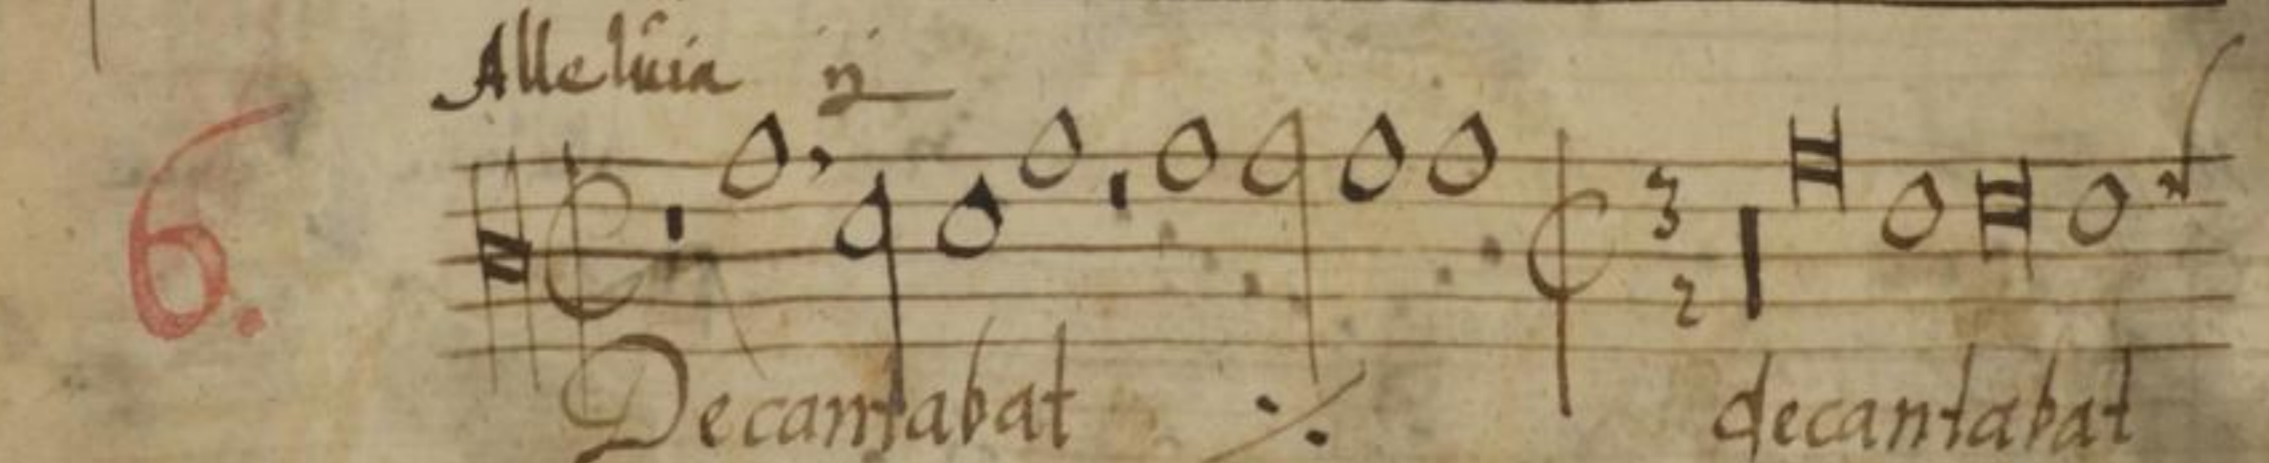 Alleluia ij
6.
3
2
Decantabat ⁒ decantabat